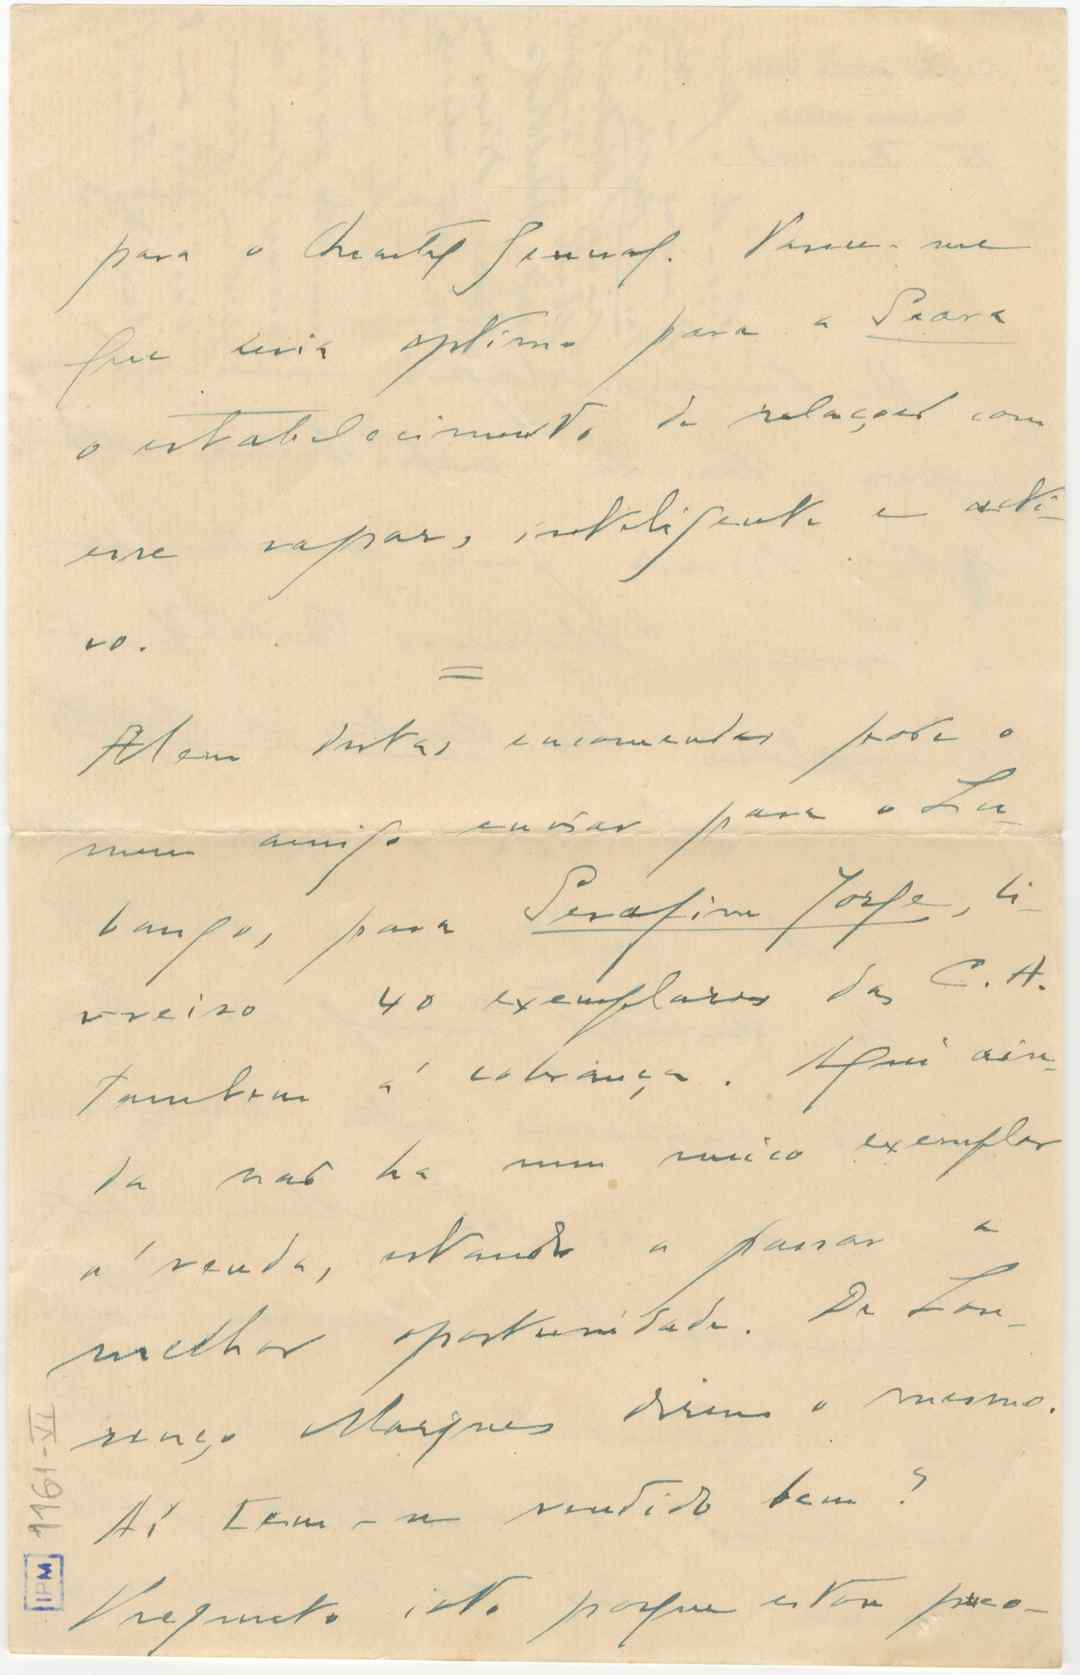 para o Quartel General. Parece-me
que seria optimo para a Seara
o estabelecimento de relações com
esse rapaz, inteligente e acti-
vo.
=
Alem destas encomendas pode o
meu amigo enviar para o Lu-
bango, para Serafim Jorge, li-
vreiro 40 exemplares das C. A.
tambem á cobrança. Aqui ain-
da não ha um unico exemplar
á venda, estando a passar a
melhor oportunidade. De Lou-
renço Marques dizem o mesmo.
Aí tem-se vendido bem?
Pregunto isto porque estou preo-
1161-VI
IPM